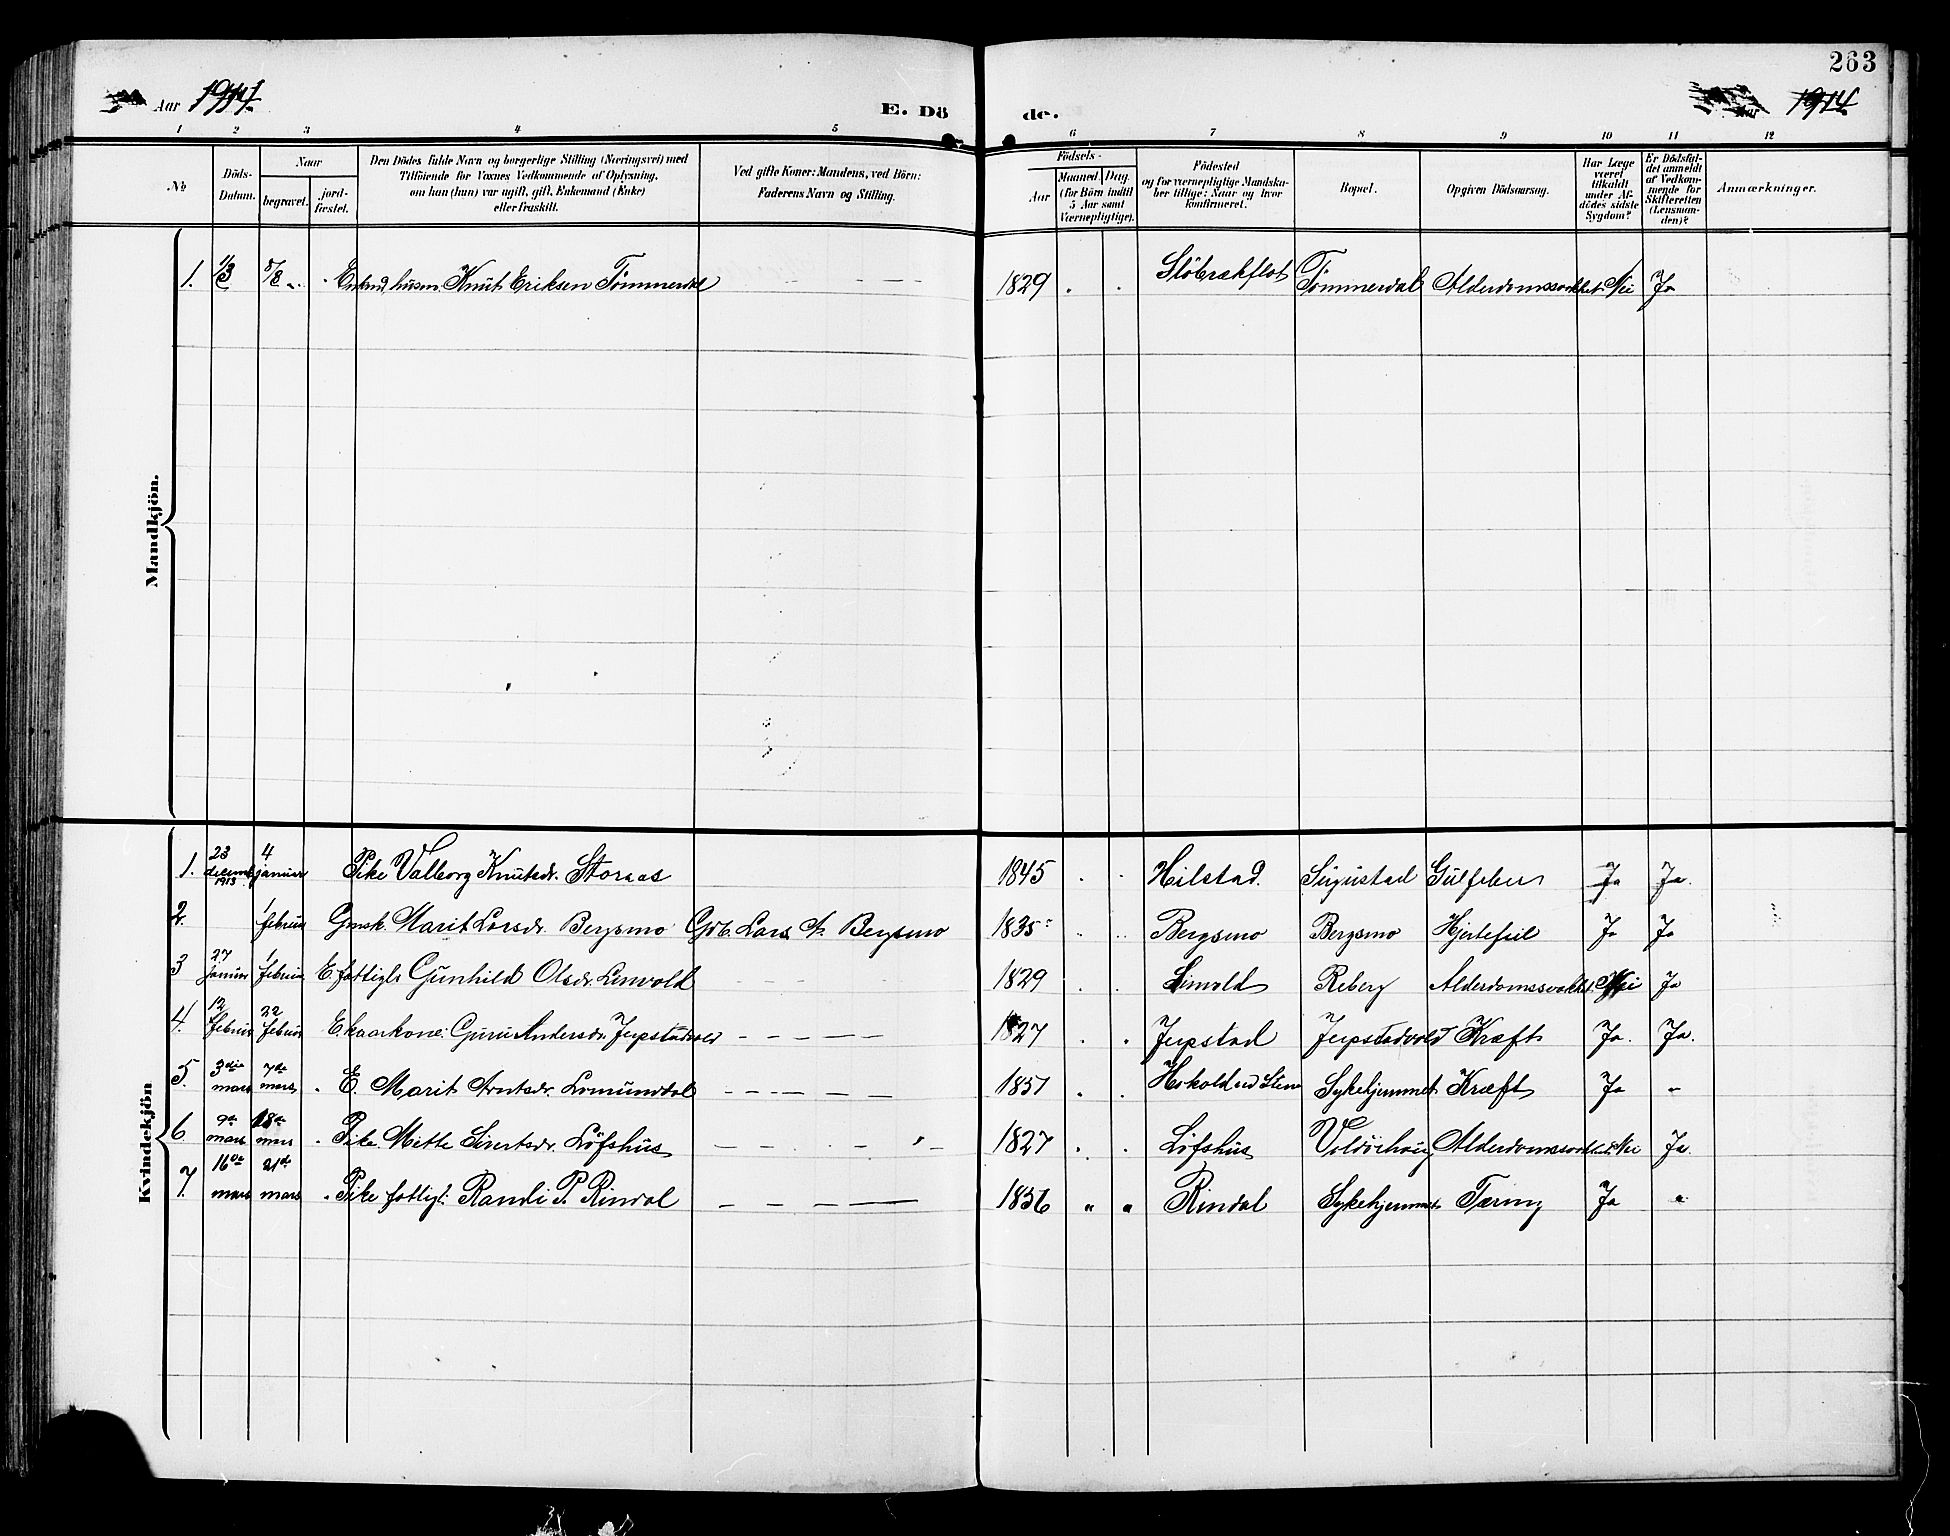 263
Aar 1914
E. Dö de.
1914
1 2 3 4 5 6 7 8 9 10 11 12
No
Döds-Datum.
Naar
begravet.
jord-fæstet.
Den Dödes fulde Navn og borgerlige Stilling (Næringsvei) med
Tilföiende for Voxnes Vedkommende af Oplysning,
om han (hun) var ugift, gift, Enkemand (Enke)
eller fraskilt.
Ved gifte Koner: Mandens, ved Börn:
Faderens Navn og Stilling.
Födsels-
Aar
Maaned Dag.
(for Börn indtil
5 Aar samt
Værnepligtige).
Födested
og for værnepligtige Mandska-
ber tillige: Naar og hvor
konfirmeret.
Bopæl.
Opgiven Dödsaarsag.
Har Læge
været
tilkaldt
under Af-
dödes sidste
Sygdom?
Er Dödsfal-
det anmeldt
af Vedkom-
mende for
Skifteretten
(Lensman-
den)?
Anmærkninger.
Mandkjön.
1. 1/3 8/3 Knut Eriksen Tømmerdal 1829 Tømmerdal Nei Ja
Kvindekjön
1. 23 decemb 1913 4 januar Pike Valborg Knutsdr. Storaas 1845 Hilstad. Gulfeber Ja Ja.
2. 1 februar Gmsk. Marit Larsdr. Bergsmo Gdb. Lars A. Bergsmo 1835 Bergsmo Bergsmo Hjertefeil Ja Ja
3 27 januar 1 februar E. fattigl. Gunhild Olsdr. 1829 Reberg Nei Ja
4. 12 februar 22 februar E. kaarkone: Guru Andersdr. Jerpstadvold 1827 Jerpstad Jerpstadvold Kræft Ja. Ja.
5. 3die mars 7de mars E. Marit Arntsdr. Lomundal 1851 Sykehjemmet Kræft Ja "
6 9de mars 18de mars Pike. Mette Sivertsdr. Löfshus 1827 Löfshus Nei Ja
7. 16de mars 21de mars Pike fattigl. Randi P. Rindal 1836 " " Rindal Sykehjemmet Tæring Ja "